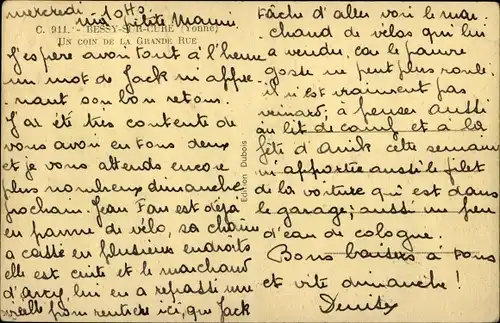 mercredi 10 H 3/0
ma petite Mamie,
C. 911. - BESSY-SUR-CURE (Yonne)
UN COIN DE LA GRANDE RUE
J'espère avoir tout à l'heure
un mot de Jack m'appre-
nant son bon retour.
J'ai été très contente de
vous avoir eu tous deux
et je vous attends encore
plus nombreux dimanche
prochain. Jean Fau est déjà
en panne de vélo, sa chaîne
a cassé en plusieurs endroits
elle est cuite et le marchand
d'Arcy lui en a refassé une
vieille pour rentrer ici, que Jack
Edition Dubois
tâche d'aller voir le mar-
chand de vélos qui lui
a vendu, car le pauvre
gosse ne peut plus rouler
il n'est vraiment pas
veinard; à penser aussi
au lit de camp et à la
fête d'Anik cette semaine
m'apporter aussi le filet
de la voiture qui est dans
le garage; aussi un peu
d'eau de cologne.
Bons baisers à tous
et vite dimanche!
Denise